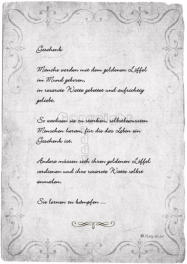 Geschenk

Manche werden mit dem goldenen Löffel
im Mund geboren,
in rosarote Watte gebettet und aufrichtig
geliebt.

So wachsen sie zu starken, selbstbewussten
Menschen heran, für die das Leben ein
Geschenk ist.

Andere müssen sich ihren goldenen Löffel
verdienen und ihre rosarote Watte selbst
sammeln.

Sie lernen zu kämpfen ...